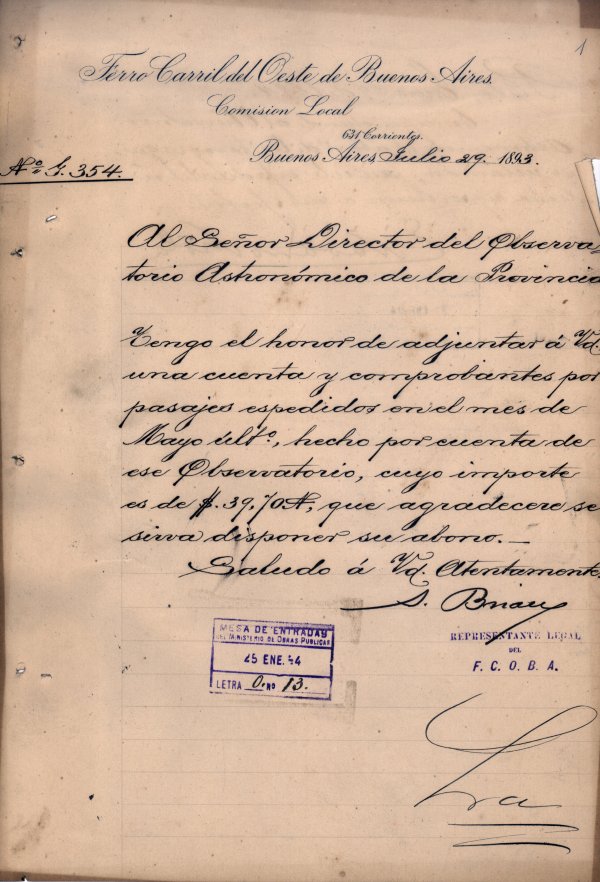 1
Ferro Carril del Oeste de Buenos Aires.
Comision Local
631 Corrientes.
Buenos Aires, Julio 29. 1893.
Nº G. 354.
Al Señor Director del Observa-
torio Astronómico de la Provincia
Tengo el honor de adjuntar á Vd.
una cuenta y comprobantes por
pasajes espedidos en el mes de
Mayo últº, hecho por cuenta de
ese Observatorio, cuyo importe
es de $. 39.70 N, que agradecere se
sirva disponer su abono.—
Saludo á Vd. Atentamente
S. Brian
MESA DE ENTRADAS
DEL MINISTERIO DE OBRAS PUBLICAS
25 ENE. 94
LETRA O. Nº 13.
REPRESENTANTE LEGAL
DEL
F. C. O. B. A.